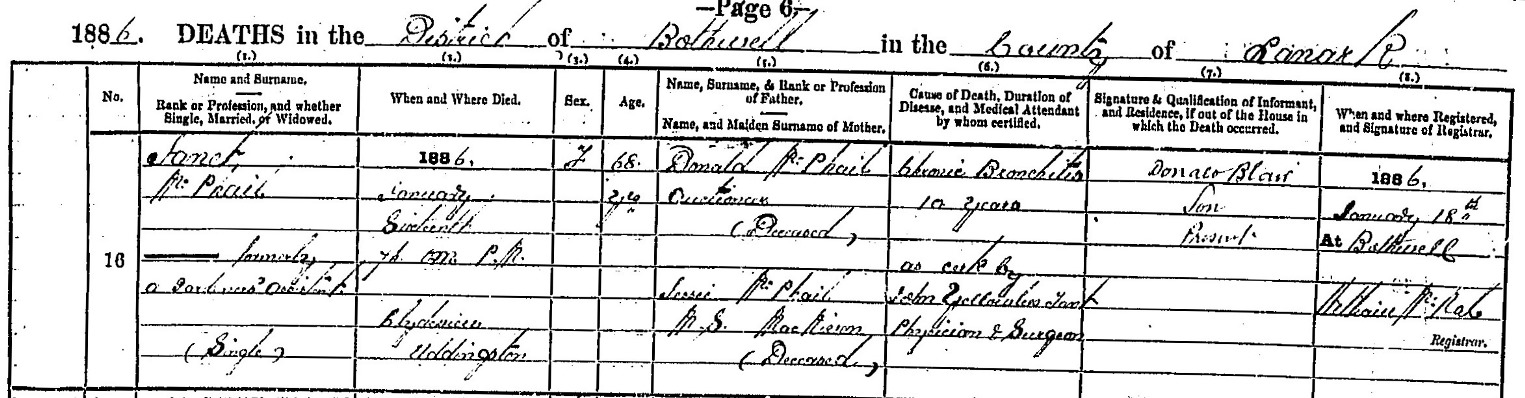 —Page 6—
1886. DEATHS in the District of Bothwell in the County of Lanark
(1.) (2.) (3.) (4.) (5.) (6.) (7.) (8.)
No.
Name and Surname.
Rank or Profession, and whether
Single, Married, or Widowed.
When and Where Died.
Sex.
Age.
Name, Surname, & Rank or Profession
of Father.
Name, and Maiden Surname of Mother.
Cause of Death, Duration of
Disease, and Medical Attendant
by whom certified.
Signature & Qualification of Informant,
and Residence, if out of the House in
which the Death occurred.
When and where Registered,
and Signature of Registrar.
16
Janet
Mc Phail
formerly
a
(Single)
1886,
January
Sixteenth
7h P.M.
Clydeview
Uddingston
F
68
yrs
Donald Mc Phail
(Deceased)
Jessie Mc Phail
M.S.
(Deceased)
Chronic Bronchitis
10 years
as cert by
John
Physician & Surgeon
Donald Blair
Son
Present
1886.
January 18th
At Bothwell
William
Registrar.